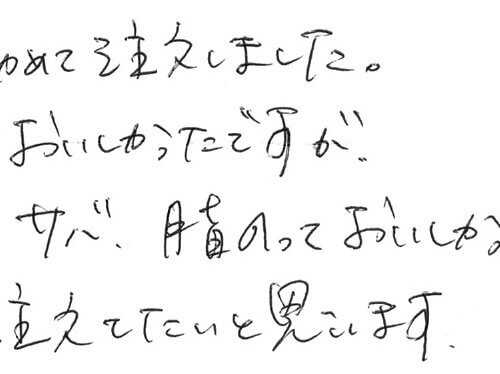 めて注文しました。
おいしかったですが、
サバ、脂のっておいしか
注文てたいと思います。